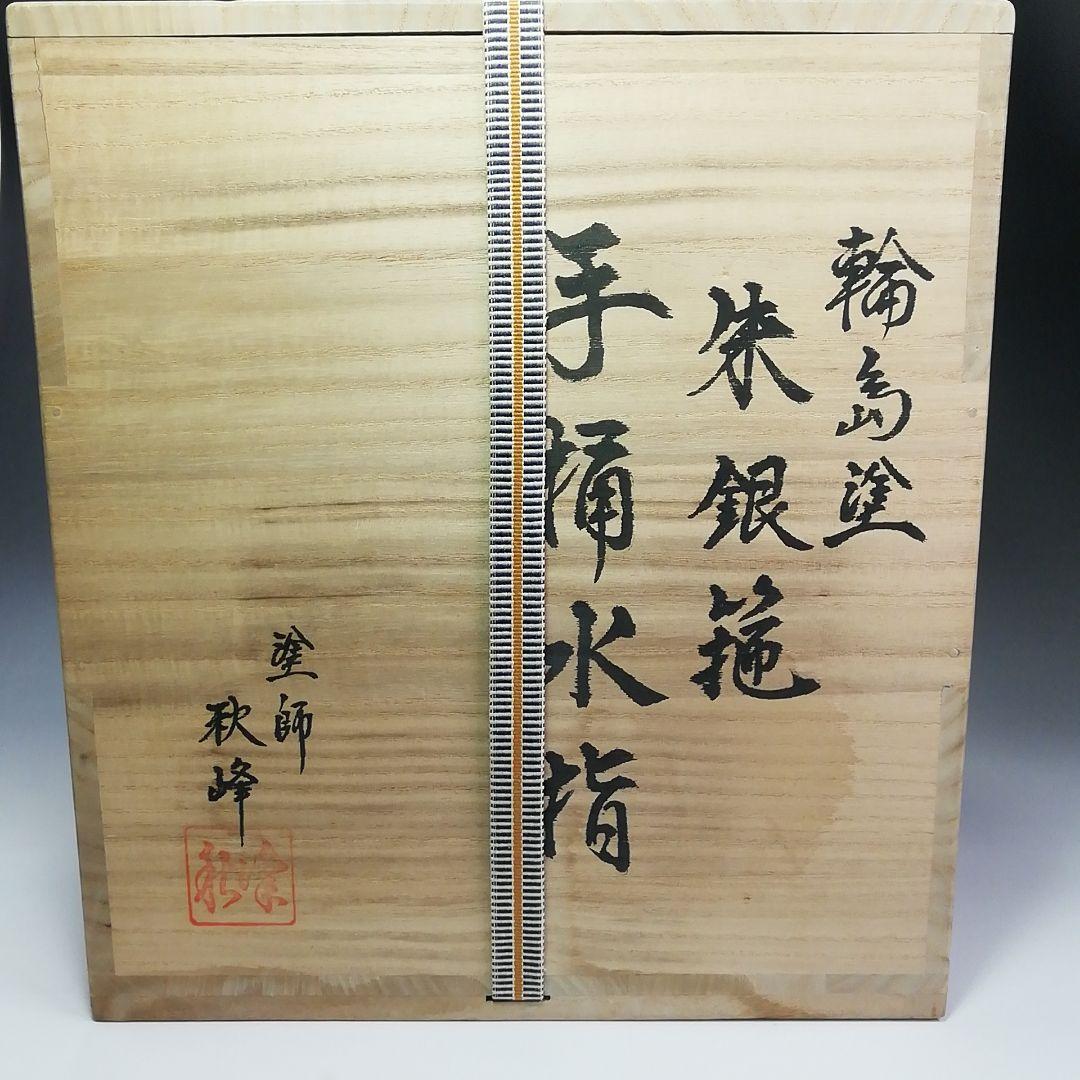 輪島塗
朱銀箔
手桶水指
塗師
秋峰
秋峰